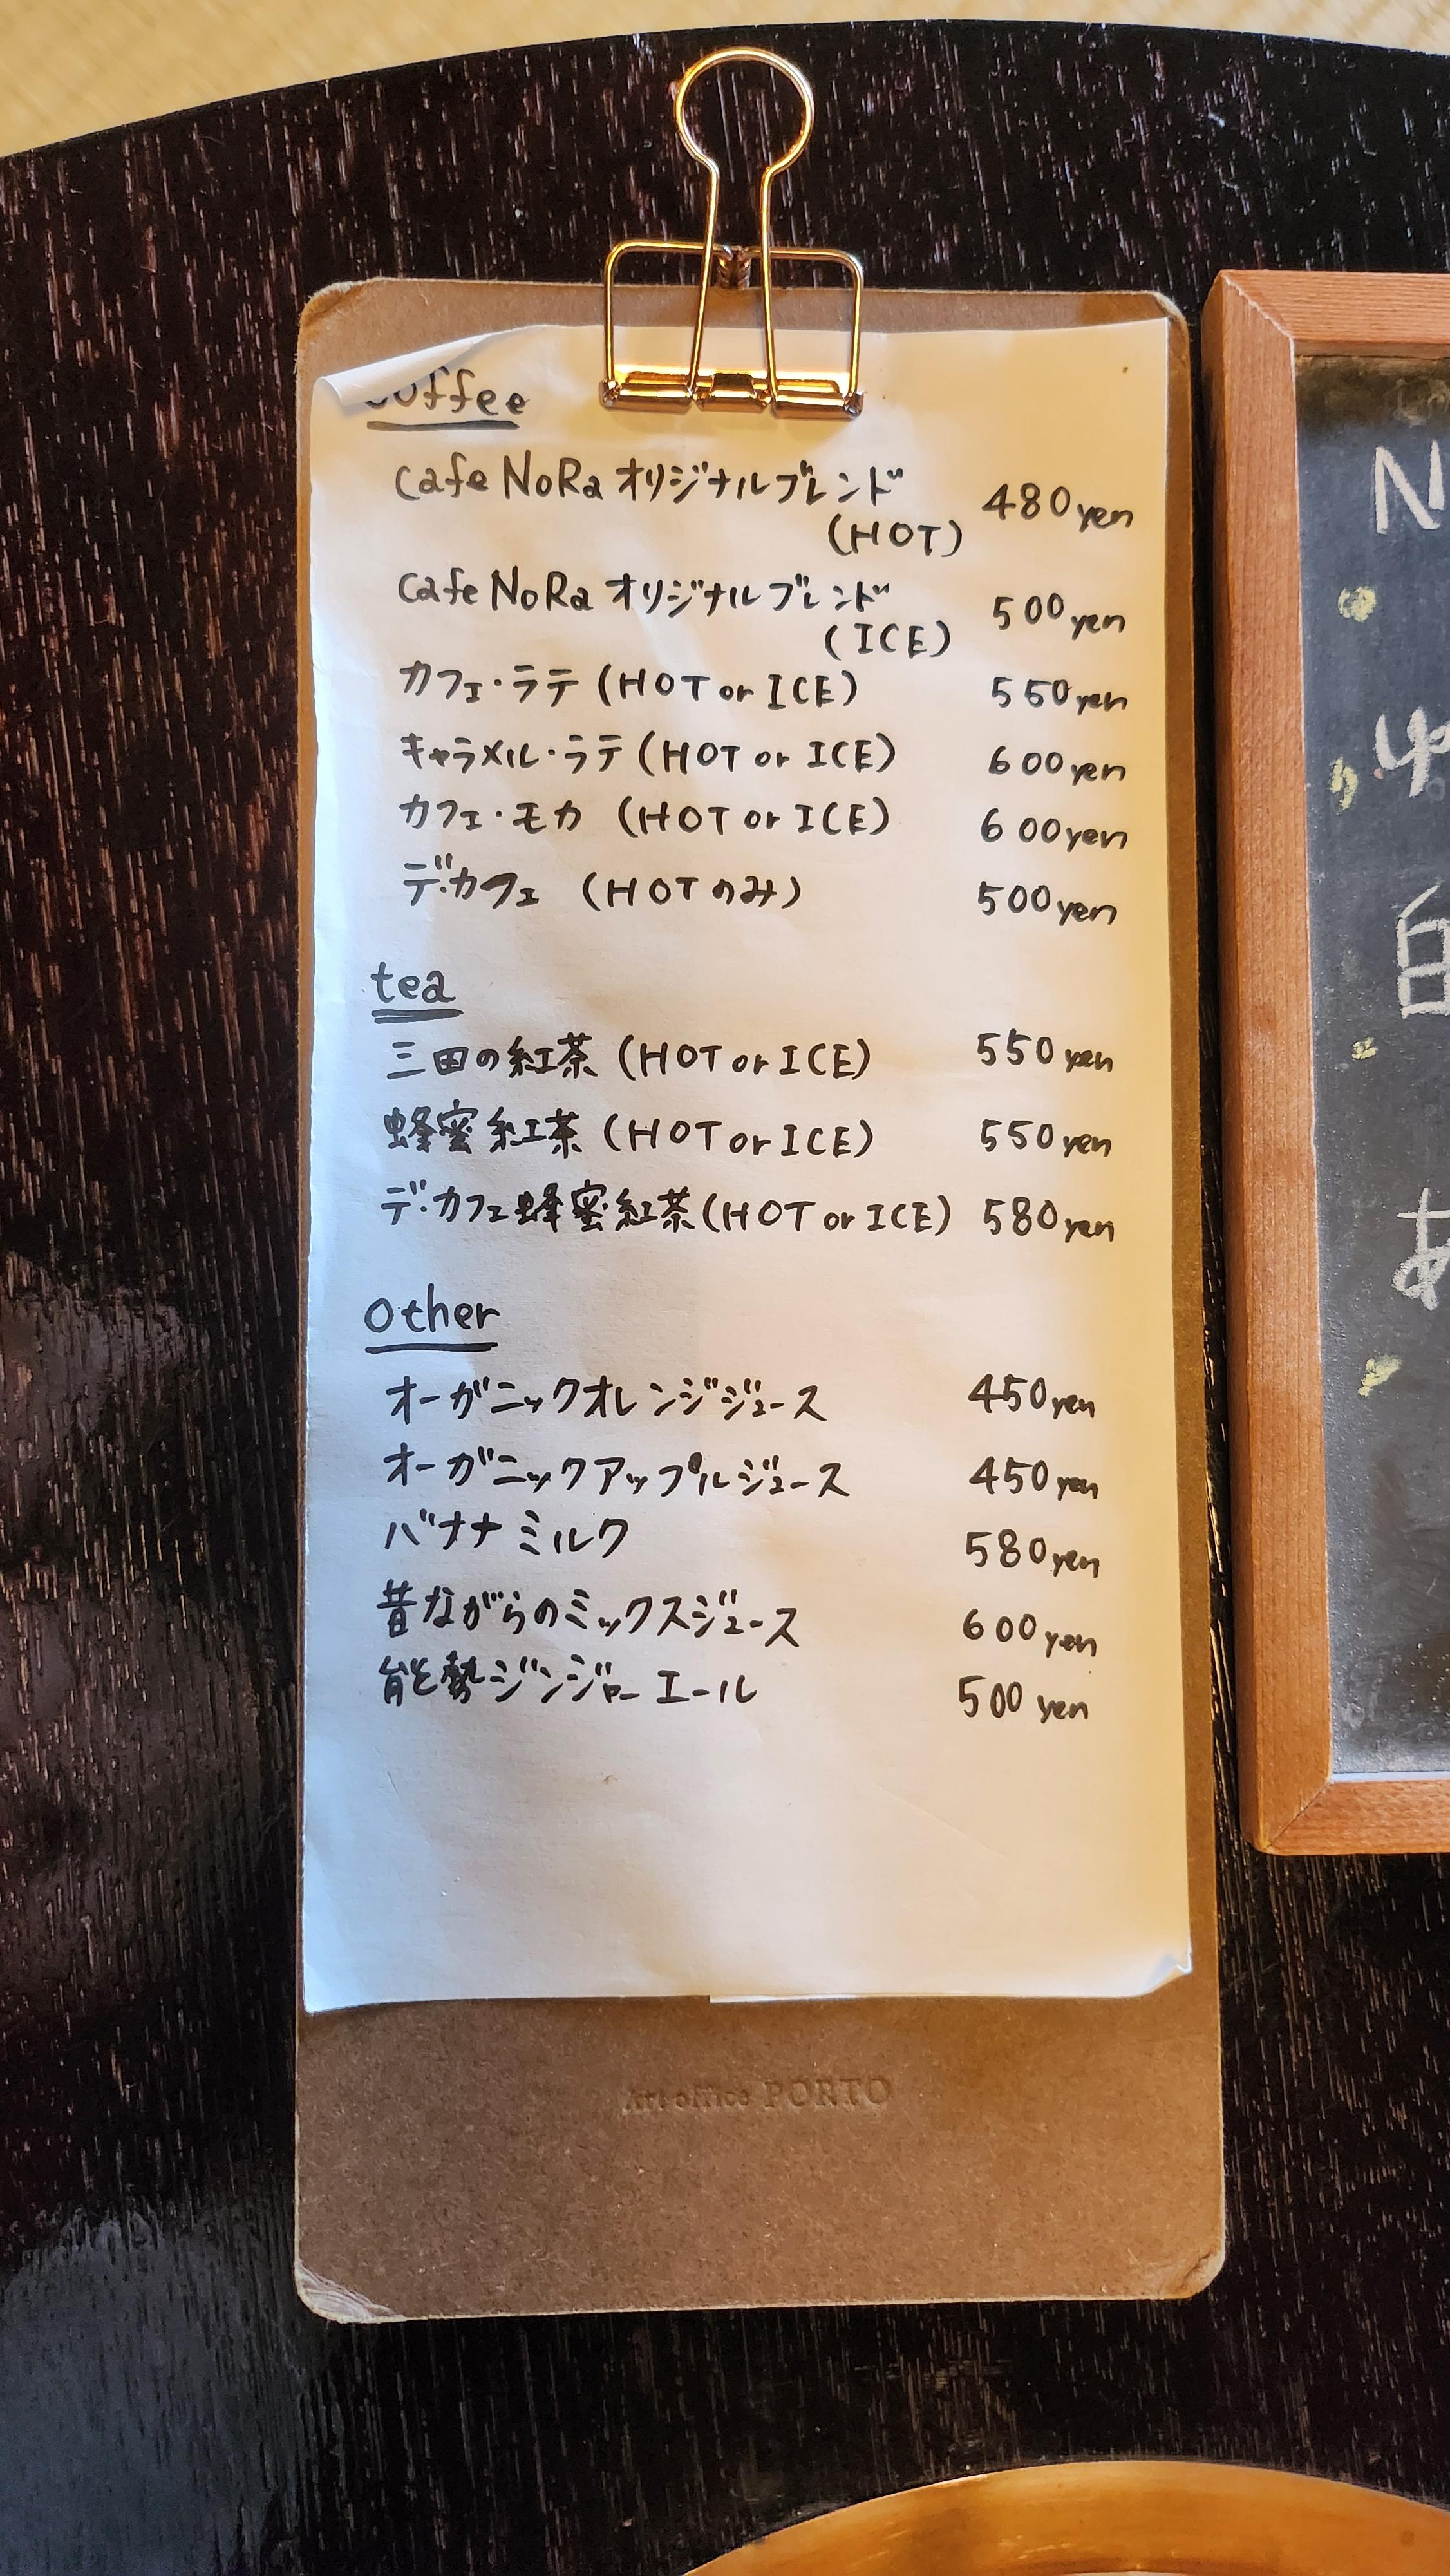 coffee
cafe NoRa オリジナルブレンド
(HOT) 480yen
cafe NoRa オリジナルブレンド
(ICE) 500yen
カフェ・ラテ (HOT or ICE) 550yen
キャラメル・ラテ (HOT or ICE) 600yen
カフェ・モカ (HOT or ICE) 600yen
デ・カフェ (HOTのみ) 500yen
tea
三田の紅茶 (HOT or ICE) 550yen
蜂蜜紅茶 (HOT or ICE) 550yen
デ・カフェ蜂蜜紅茶 (HOT or ICE) 580yen
other
オーガニックオレンジジュース 450yen
オーガニックアップルジュース 450yen
バナナミルク 580yen
昔ながらのミックスジュース 600yen
能勢ジンジャーエール 500yen
Art office PORTO
N
ゆ
自
あ